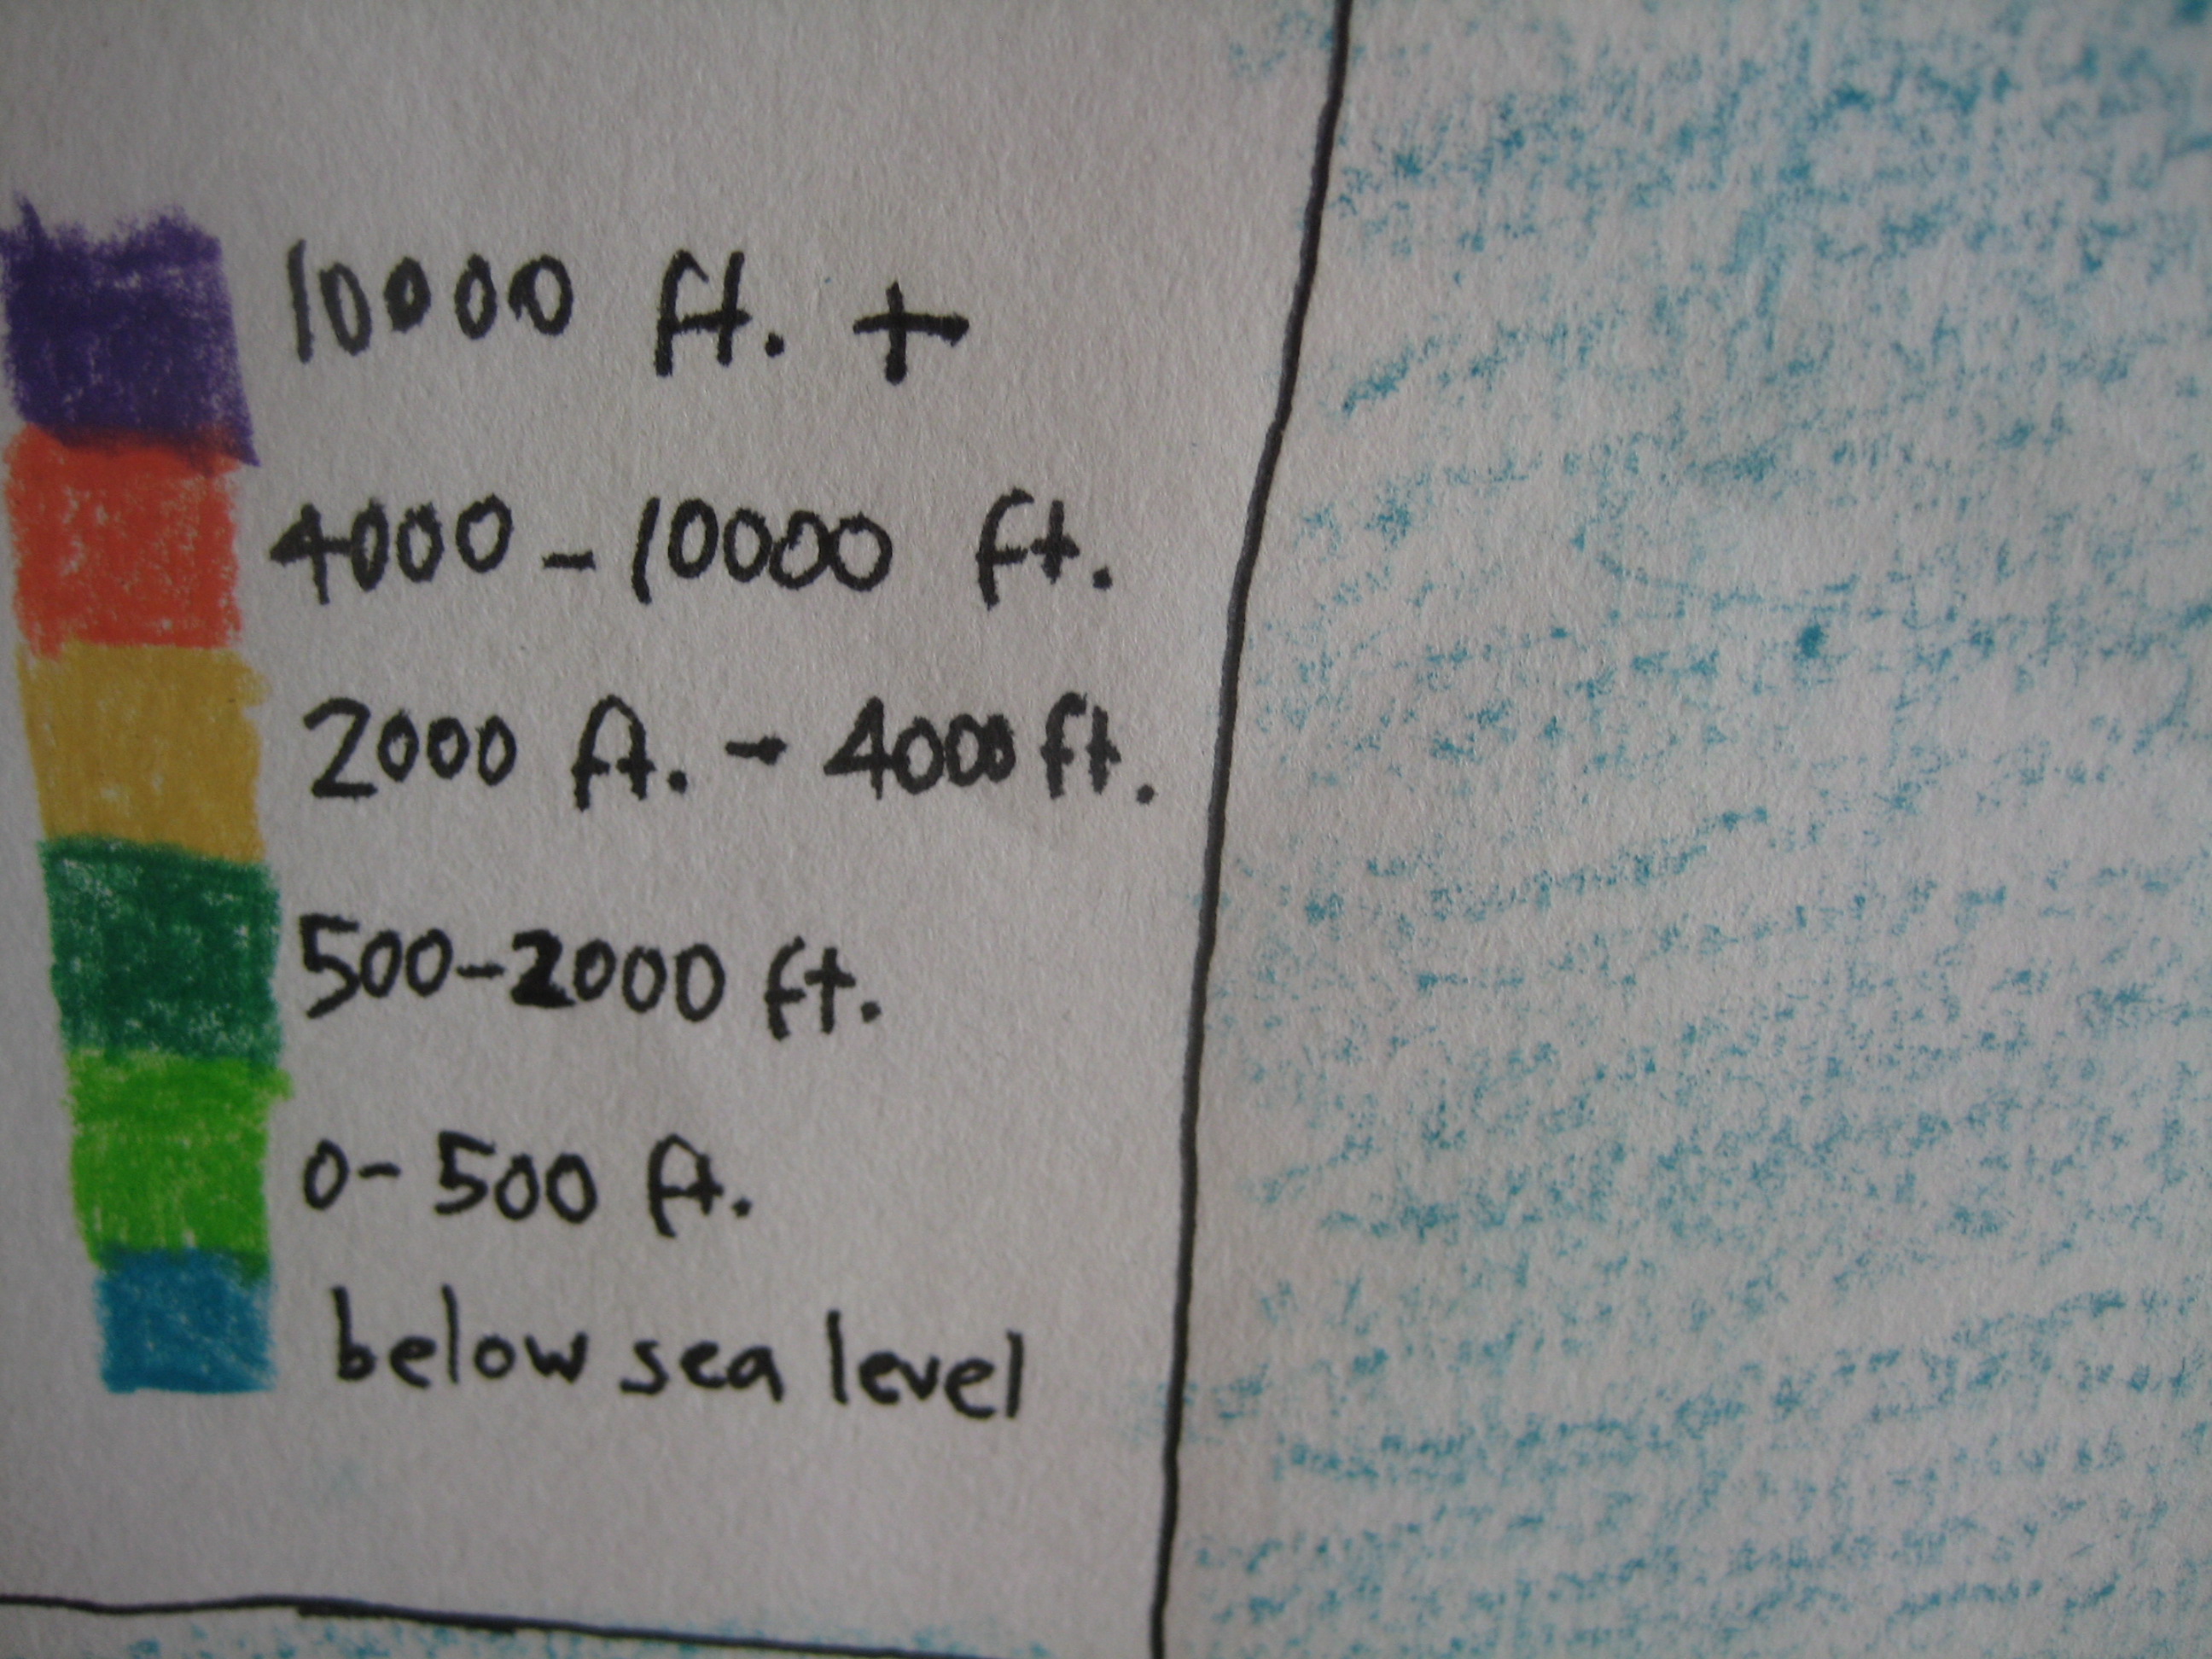 10000 ft. +
4000 - 10000 ft.
2000 ft. - 4000 ft.
500-2000 ft.
0- 500 ft.
below sea level